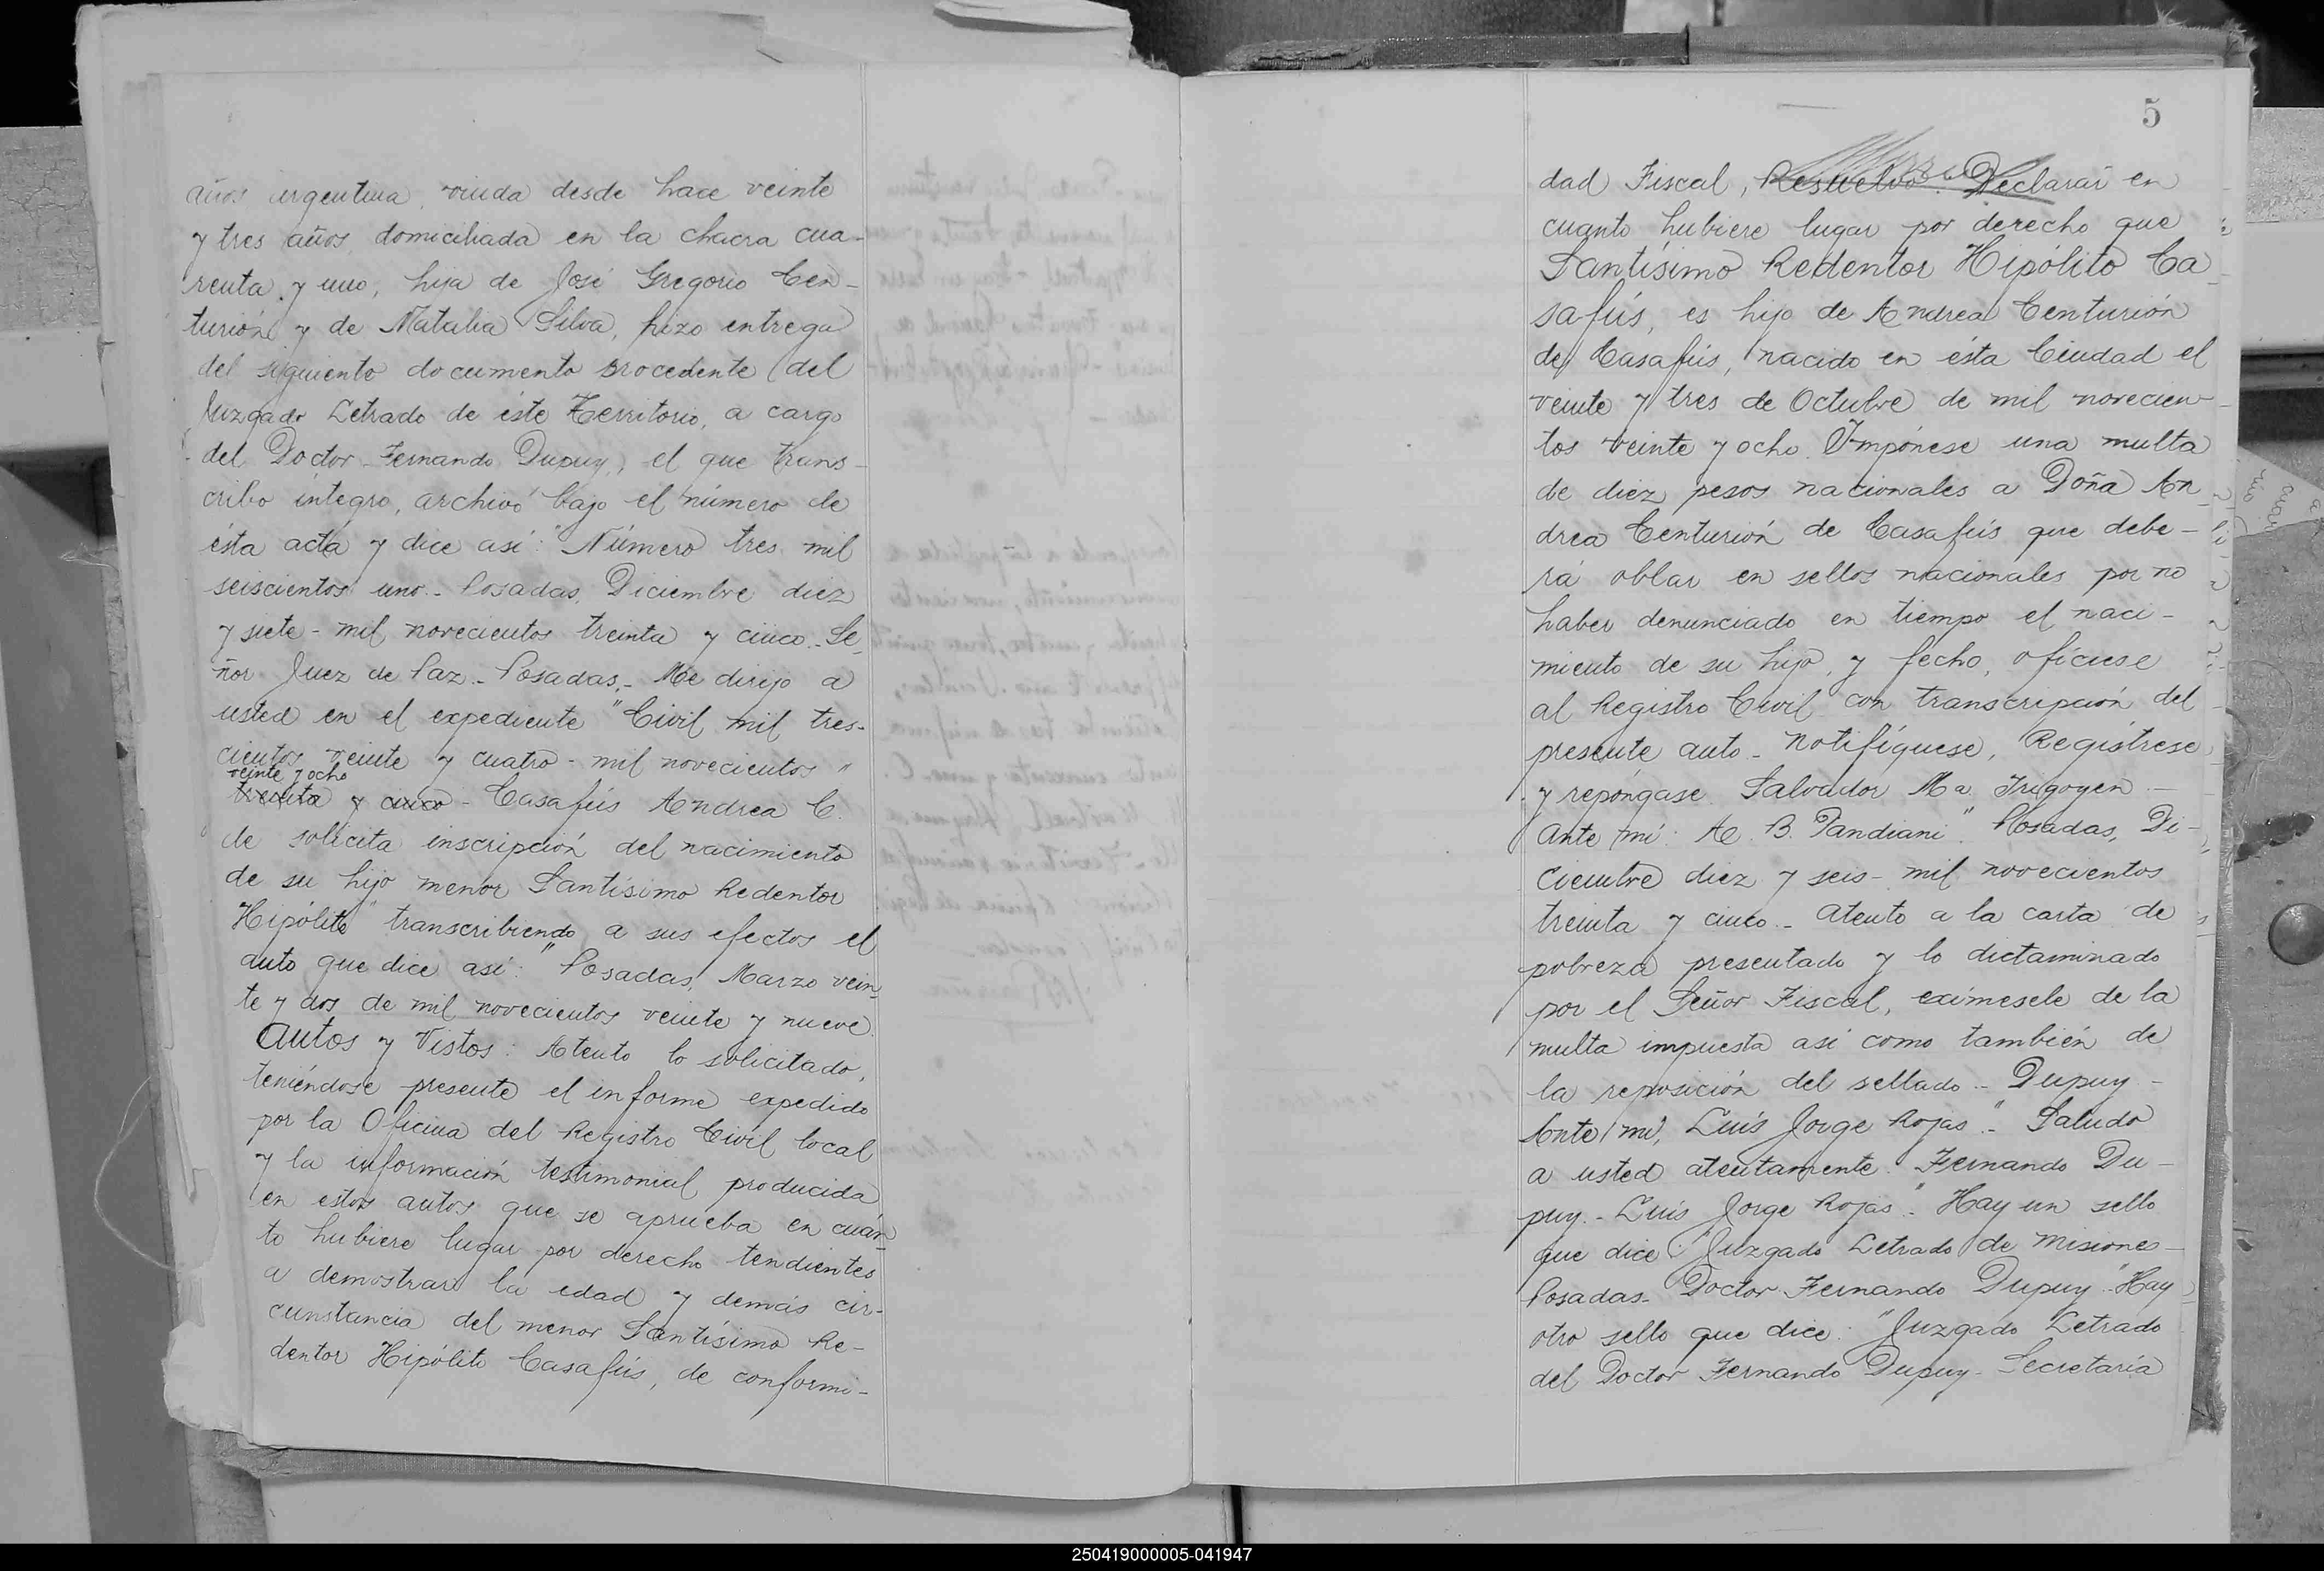 años argentina, viuda desde hace veinte
y tres años, domiciliada en la chacra cua-
renta y uno, hija de José Gregorio Cen-
turión y de Natalia Silva, hizo entrega
del siguiente documento procedente del
Juzgado Letrado de éste Territorio, a cargo
del Doctor Fernando Dupuy, el que trans-
cribo íntegro, archivo bajo el número de
ésta acta y dice así: "Número tres mil
seiscientos uno.- Posadas, Diciembre diez
y siete- mil novecientos treinta y cinco.- Se-
ñor Juez de Paz.- Posadas.- Me dirijo a
usted en el expediente "Civil mil tres-
cientos veinte y cuatro- mil novecientos "
veinte y ocho
treinta y cinco - Casafús Andrea C.
de solicita inscripción del nacimiento
de su hijo menor Santísimo Redentor
Hipólito" transcribiendo a sus efectos el
auto que dice así: "Posadas, Marzo vein-
te y dos de mil novecientos veinte y nueve.
Autos y Vistos: Atento lo solicitado,
teniéndose presente el informe expedido
por la Oficina del Registro Civil local
y la información testimonial producida
en estos autos que se aprueba en cuán-
to hubiere lugar por derecho tendientes
a demostrar la edad y demás cir-
cunstancia del menor Santísimo Re-
dentor Hipólito Casafús, de conformi-
5
dad Fiscal, Resuelvo: Declarar en
cuanto hubiere lugar por derecho que
Santísimo Redentor Hipólito Ca-
safús, es hijo de Andrea Centurión
de Casafús, nacido en ésta Ciudad el
veinte y tres de Octubre de mil novecien-
tos veinte y ocho. Impónese una multa
de diez pesos nacionales a Doña An-
drea Centurión de Casafús que debe-
rá oblar en sellos nacionales por no
haber denunciado en tiempo el naci-
miento de su hijo, y fecho, ofíciese
al Registro Civil con transcripción del
presente auto.- Notifíquese, Regístrese
y repóngase. Salvador Ma. Irigoyen.-
Ante mí: A. B. Pandiani". Posadas, Di-
ciembre diez y seis- mil novecientos
treinta y cinco.- Atento a la carta de
pobreza presentado y lo dictaminado
por el Señor Fiscal, exímesele de la
multa impuesta así como también de
la reposición del sellado.- Dupuy-
Ante mí, Luís Jorge Rojas".- Saludo
a usted atentamente. Fernando Du-
puy.- Luís Jorge Rojas". Hay un sello
que dice: "Juzgado Letrado de Misiones-
Posadas- Doctor Fernando Dupuy". Hay
otro sello que dice: "Juzgado Letrado
del Doctor Fernando Dupuy- Secretaría
250419000005-041947